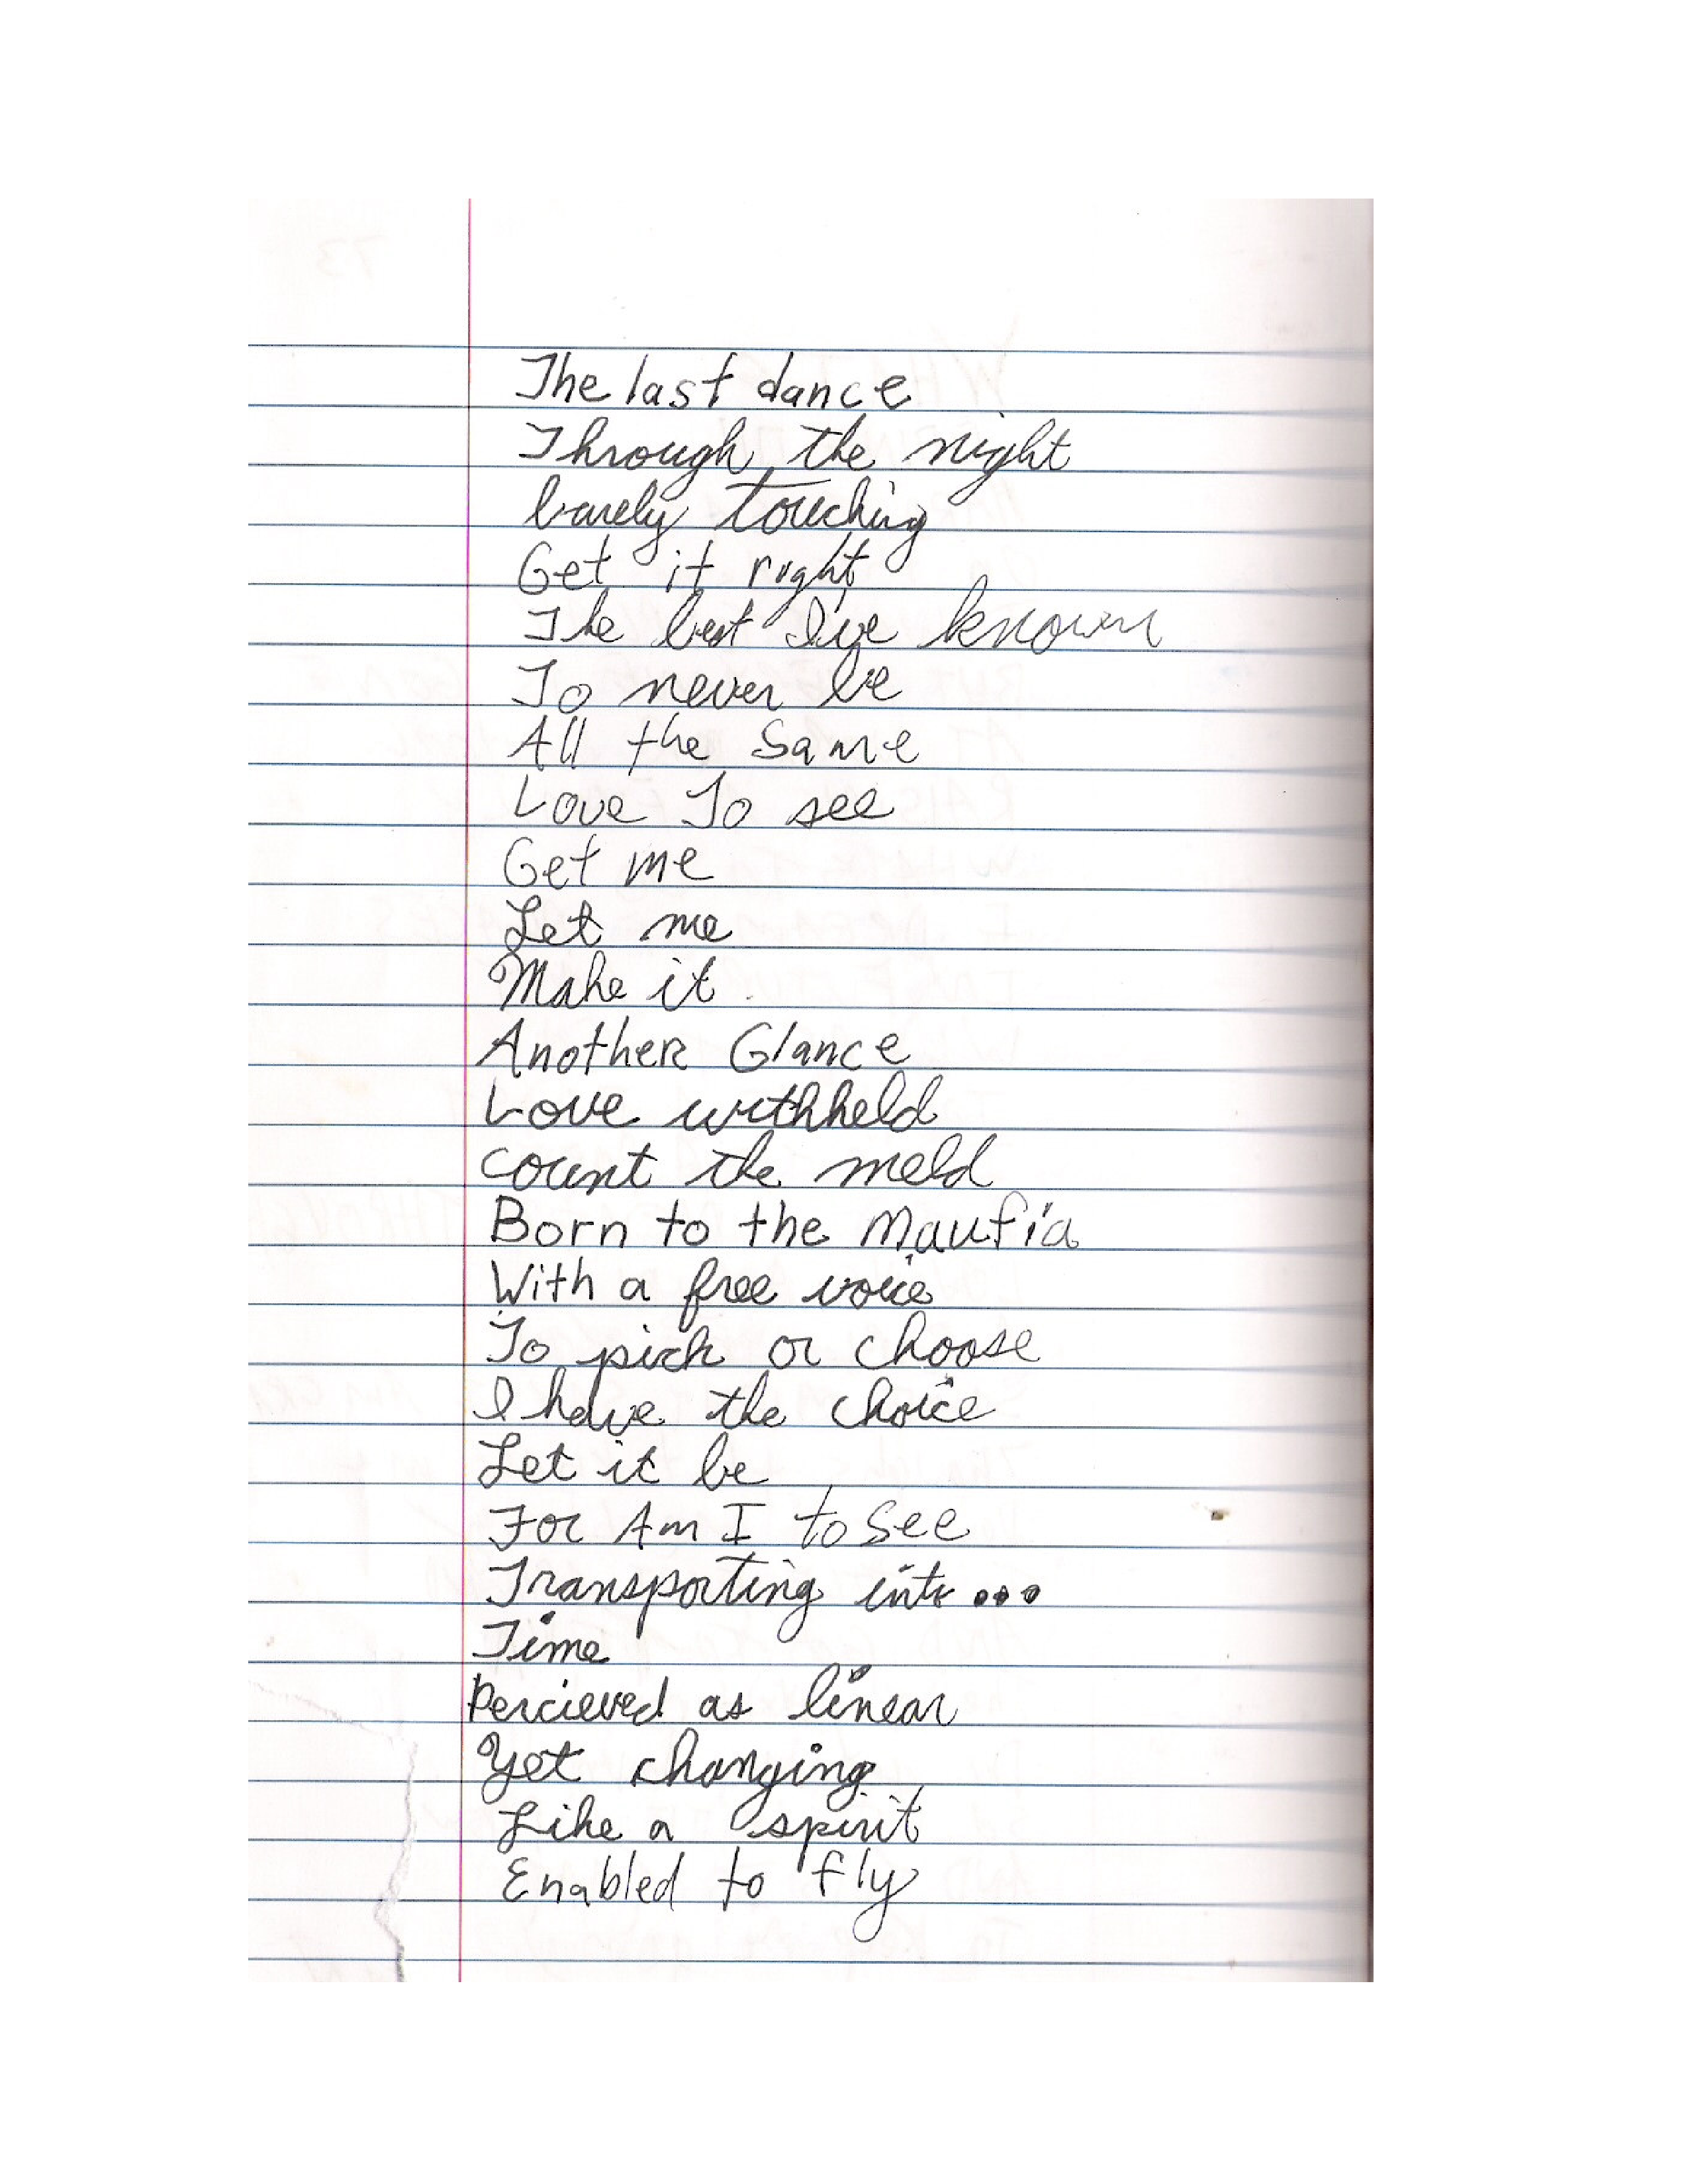 The last dance
Through the night
barely touching
Get it right
The best I've known
To never be
All the Same
Love To see
Get me
Let me
Make it
Another Glance
Love withheld
count the meld
Born to the Maufia
With a free voice
To pick or choose
I have the choice
Let it be
For Am I to see
Transporting into...
Time
Percieved as linear
Yet changing
Like a spirit
Enabled to fly